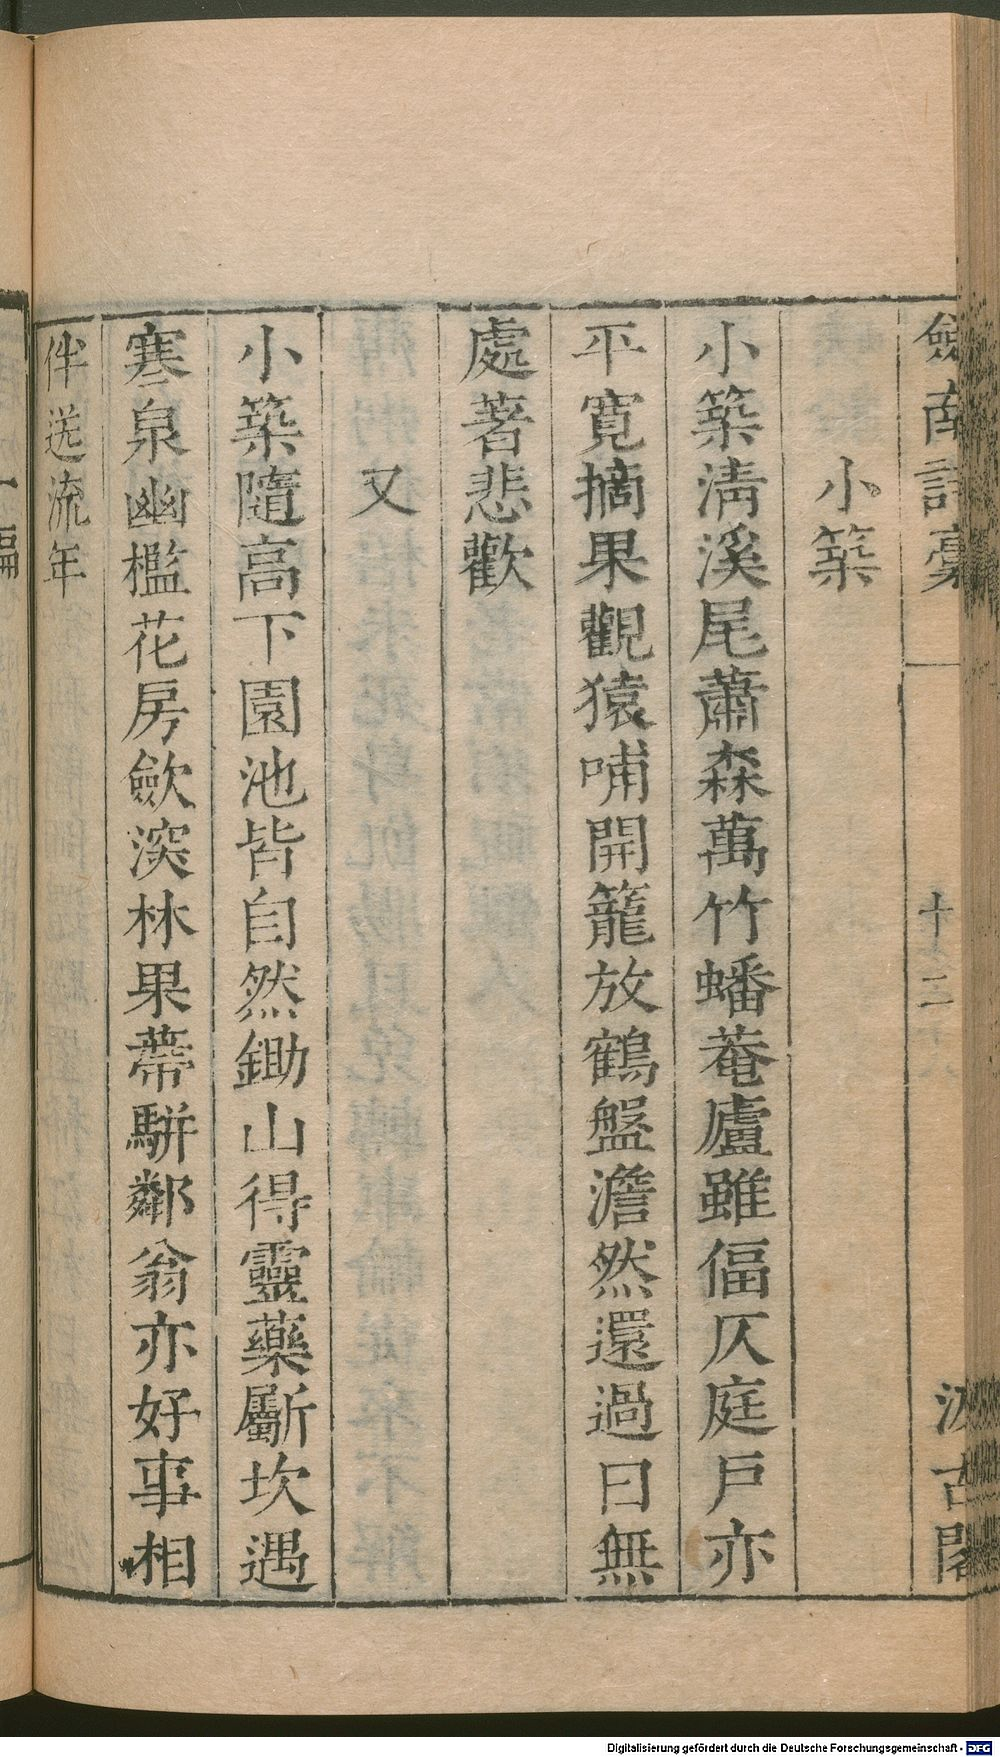 劍南詩稾
十二
汲古閣
小築
小築淸溪尾蕭森萬竹蟠菴廬雖偪仄庭戸亦
平寛摘果觀猿哺開籠放鶴盤澹然還過日無
處著悲歡
又
小築隨高下園池皆自然鋤山得靈藥斸坎遇
寒泉幽檻花房歛深林果蔕駢鄰翁亦好事相
伴送流年
Digitalisierung gefördert durch die Deutsche Forschungsgemeinschaft - DFG